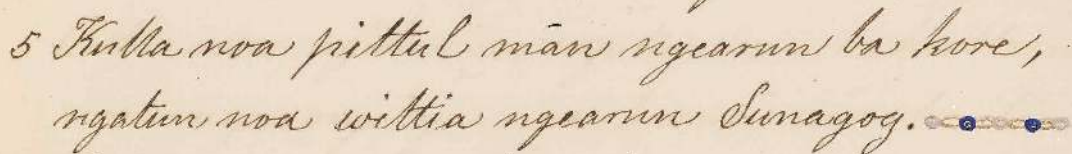 5 Kulla noa pittul mān ngearun ba kore,
ngatun noa wittia ngearun Sunagog.